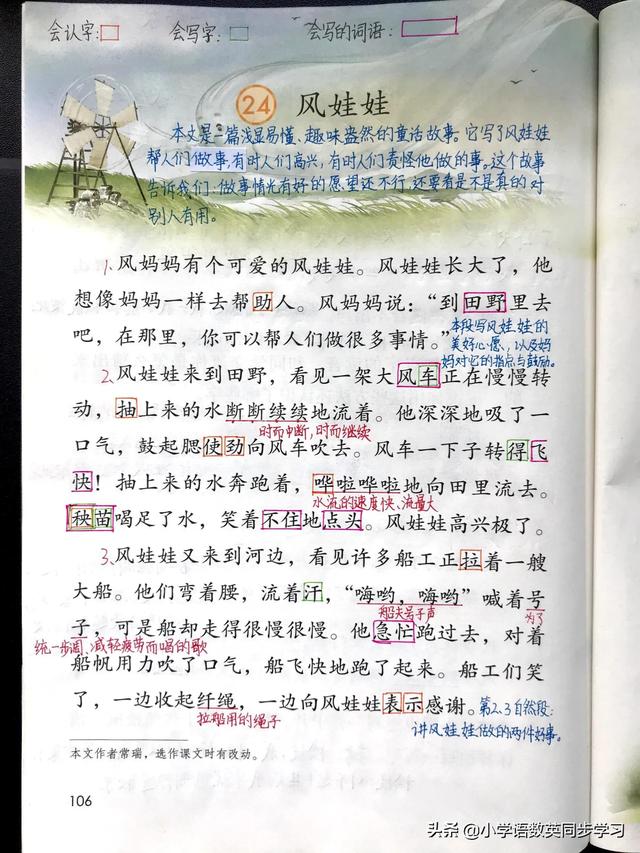 会认字：
会写字：
会写的词语：
24 风娃娃
本文是一篇浅显易懂、趣味盎然的童话故事。它写了风娃娃
帮人们做事,有时人们高兴,有时人们责怪他做的事。这个故事
告诉我们:做事情光有好的愿望还不行,还要看是不是真的对
别人有用。
1.风妈妈有个可爱的风娃娃。风娃娃长大了，他
想像妈妈一样去帮助人。风妈妈说：“到田野里去
吧，在那里，你可以帮人们做很多事情。”
本段写风娃娃的
美好心愿,以及妈
妈对它的指点与鼓励。
2.风娃娃来到田野，看见一架大风车正在慢慢转
动，抽上来的水断断续续地流着。他深深地吸了一
时而中断,时而继续
口气，鼓起腮使劲向风车吹去。风车一下子转得飞
快！抽上来的水奔跑着，哗啦哗啦地向田里流去。
水流的速度快、流量大
秧苗喝足了水，笑着不住地点头。风娃娃高兴极了。
3.风娃娃又来到河边，看见许多船工正拉着一艘
大船。他们弯着腰，流着汗，“嗨哟，嗨哟”喊着号
船夫号子声
为了
子，可是船却走得很慢很慢。他急忙跑过去，对着
统一步调,减轻疲劳而唱的歌
船帆用力吹了口气，船飞快地跑了起来。船工们笑
了，一边收起纤绳，一边向风娃娃表示感谢。
拉船用的绳子
第2.3自然段:
讲风娃娃做的两件好事。
本文作者常瑞，选作课文时有改动。
106
头条 @小学语数英同步学习